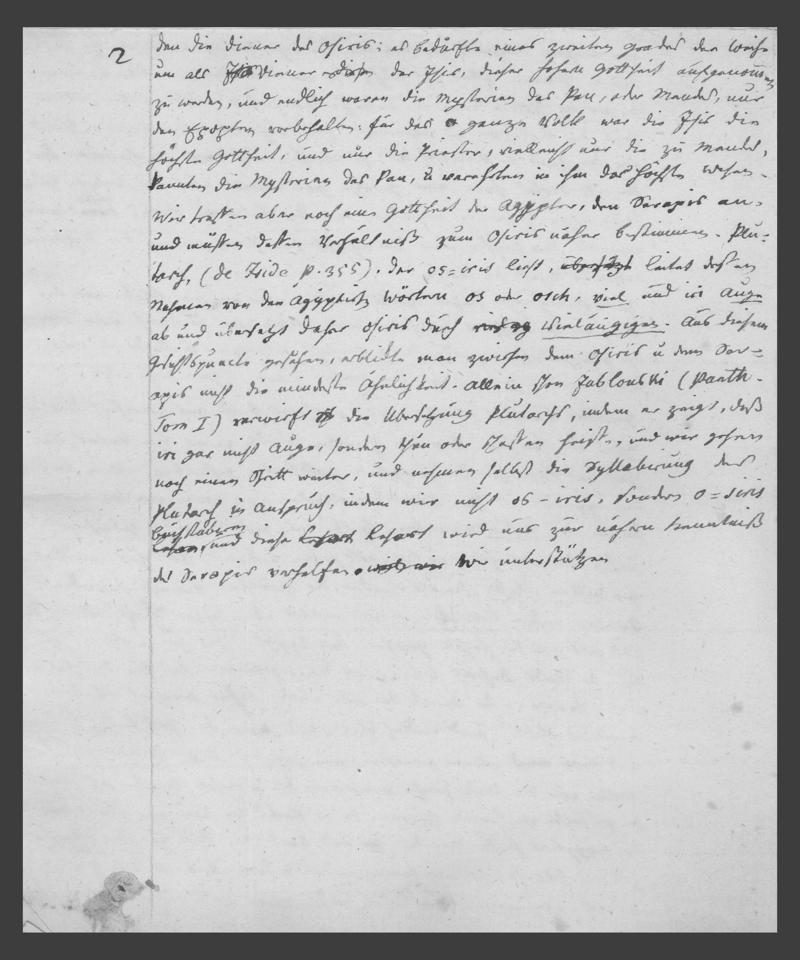 2
den die Diener des Osiris; es bedurfte eines zweiten Grades der Weihe
um als Diener der Isis, dieser hohen Gottheit aufgenommen
zu werden, und endlich waren die Mysterien des Pan, oder Mendes, nur
den Epopten vorbehalten: für das ganze Volk war die Isis die
höchste Gottheit, und nur die Priester, vielleicht nur die zu Mendes,
kannten die Mysterien des Pan, u verehrten in ihm das höchste Wesen.
Wir treffen aber noch eine Gottheit der Aegypter, den Serapis an,
und müssen dessen Verhältniß zum Osiris näher bestimmen. Plu-
tarch, (de Iside p. 355), der os=iris liest, übersetzt leitet dessen
Nahmen von den Aegyptischen Wörtern os oder osch, viel und iri Auge
ab und übersetzt daher Osiris durch vieläugiger. Aus diesem
Gesichtspuncte gesehen, erblickt man zwischen dem Osiris u dem Ser-
apis nicht die mindeste Ähnlichkeit. Allein schon Jablonski (Panth.
Tom I) verwirft die Übersetzung Plutarchs, indem er zeigt, daß
iri gar nicht Auge, sondern thun oder schaffen heißt, und wir gehen
noch einen Schritt weiter, und nehmen selbst die Syllabirung des
Plutarch in Anspruch, indem wir nicht os-iris, sondern o=siris
buchstabiren
lesen, und diese Lesart Lesart wird uns zur nähern Kenntniß
des Serapis verhelfen. Wir unterstützen